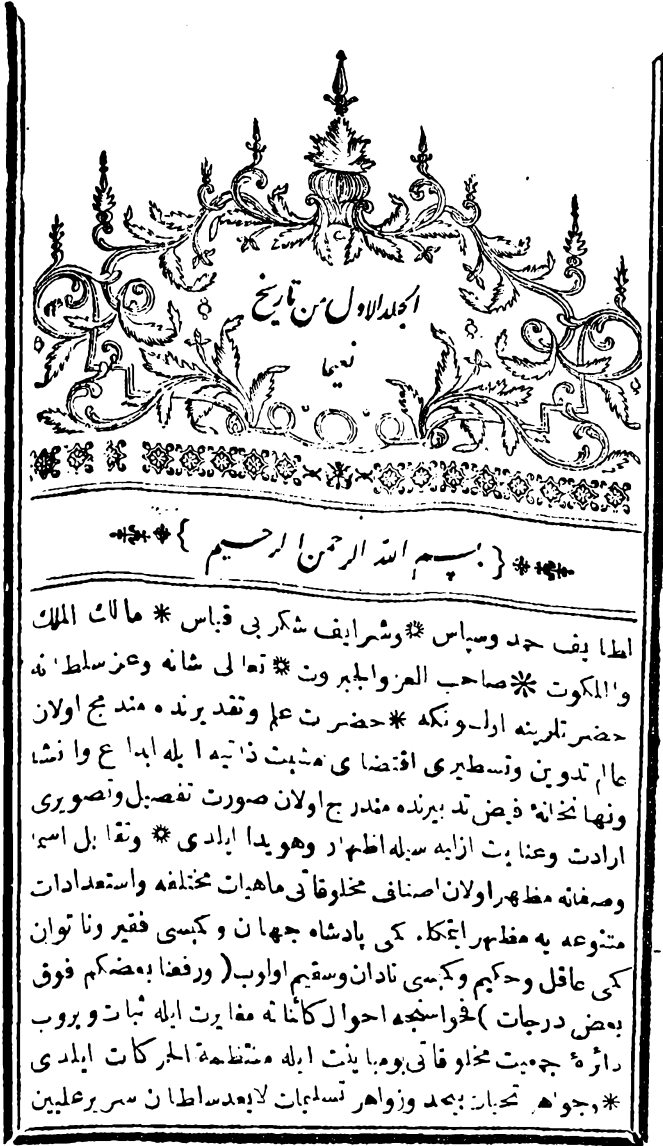 الجلد الاول من تاريخ
نعيما
بسم الله الرحمن الرحيم
لطايف حمد وسپاس * وشرايف شكر بى قياس * مالك الملك
والملكوت * صاحب العز والجبروت * تعالى شانه وعز سلطانه
حضرتلرينه اولسونكه * حضرت علم وتقديرنده مندمج اولان
عالم تدوين وتسطيرى اقتضاى مشيت ذاتيه ايله ابداع وانشا
ونهانخانهٔ فيض تدبيرنده مندرج اولان صورت تفصيل وتصويرى
ارادت وعنايت ازليه سيله اظهار وهويدا ايلدى * وتقابل اسما
وصفاته مظهر اولان اصناف مخلوقاتى ماهيات مختلفه واستعدادات
متنوعه يه مظهر ايتمكله كمى پادشاه جهان وكميسى فقير وناتوان
كمى عاقل وحكيم وكميسى نادان وسقيم اولوب ( ورفعنا بعضكم فوق
بعض درجات ) فحواسنجه احوال كائناته مغايرت ايله ثبات ويروب
دائرهٔ جمعيت مخلوقاتى بو مباينت ايله منتظمة الحركات ايلدى
* وجواهر تحيات بيحد وزواهر تسليمات لايعد سلطان سرير عليين